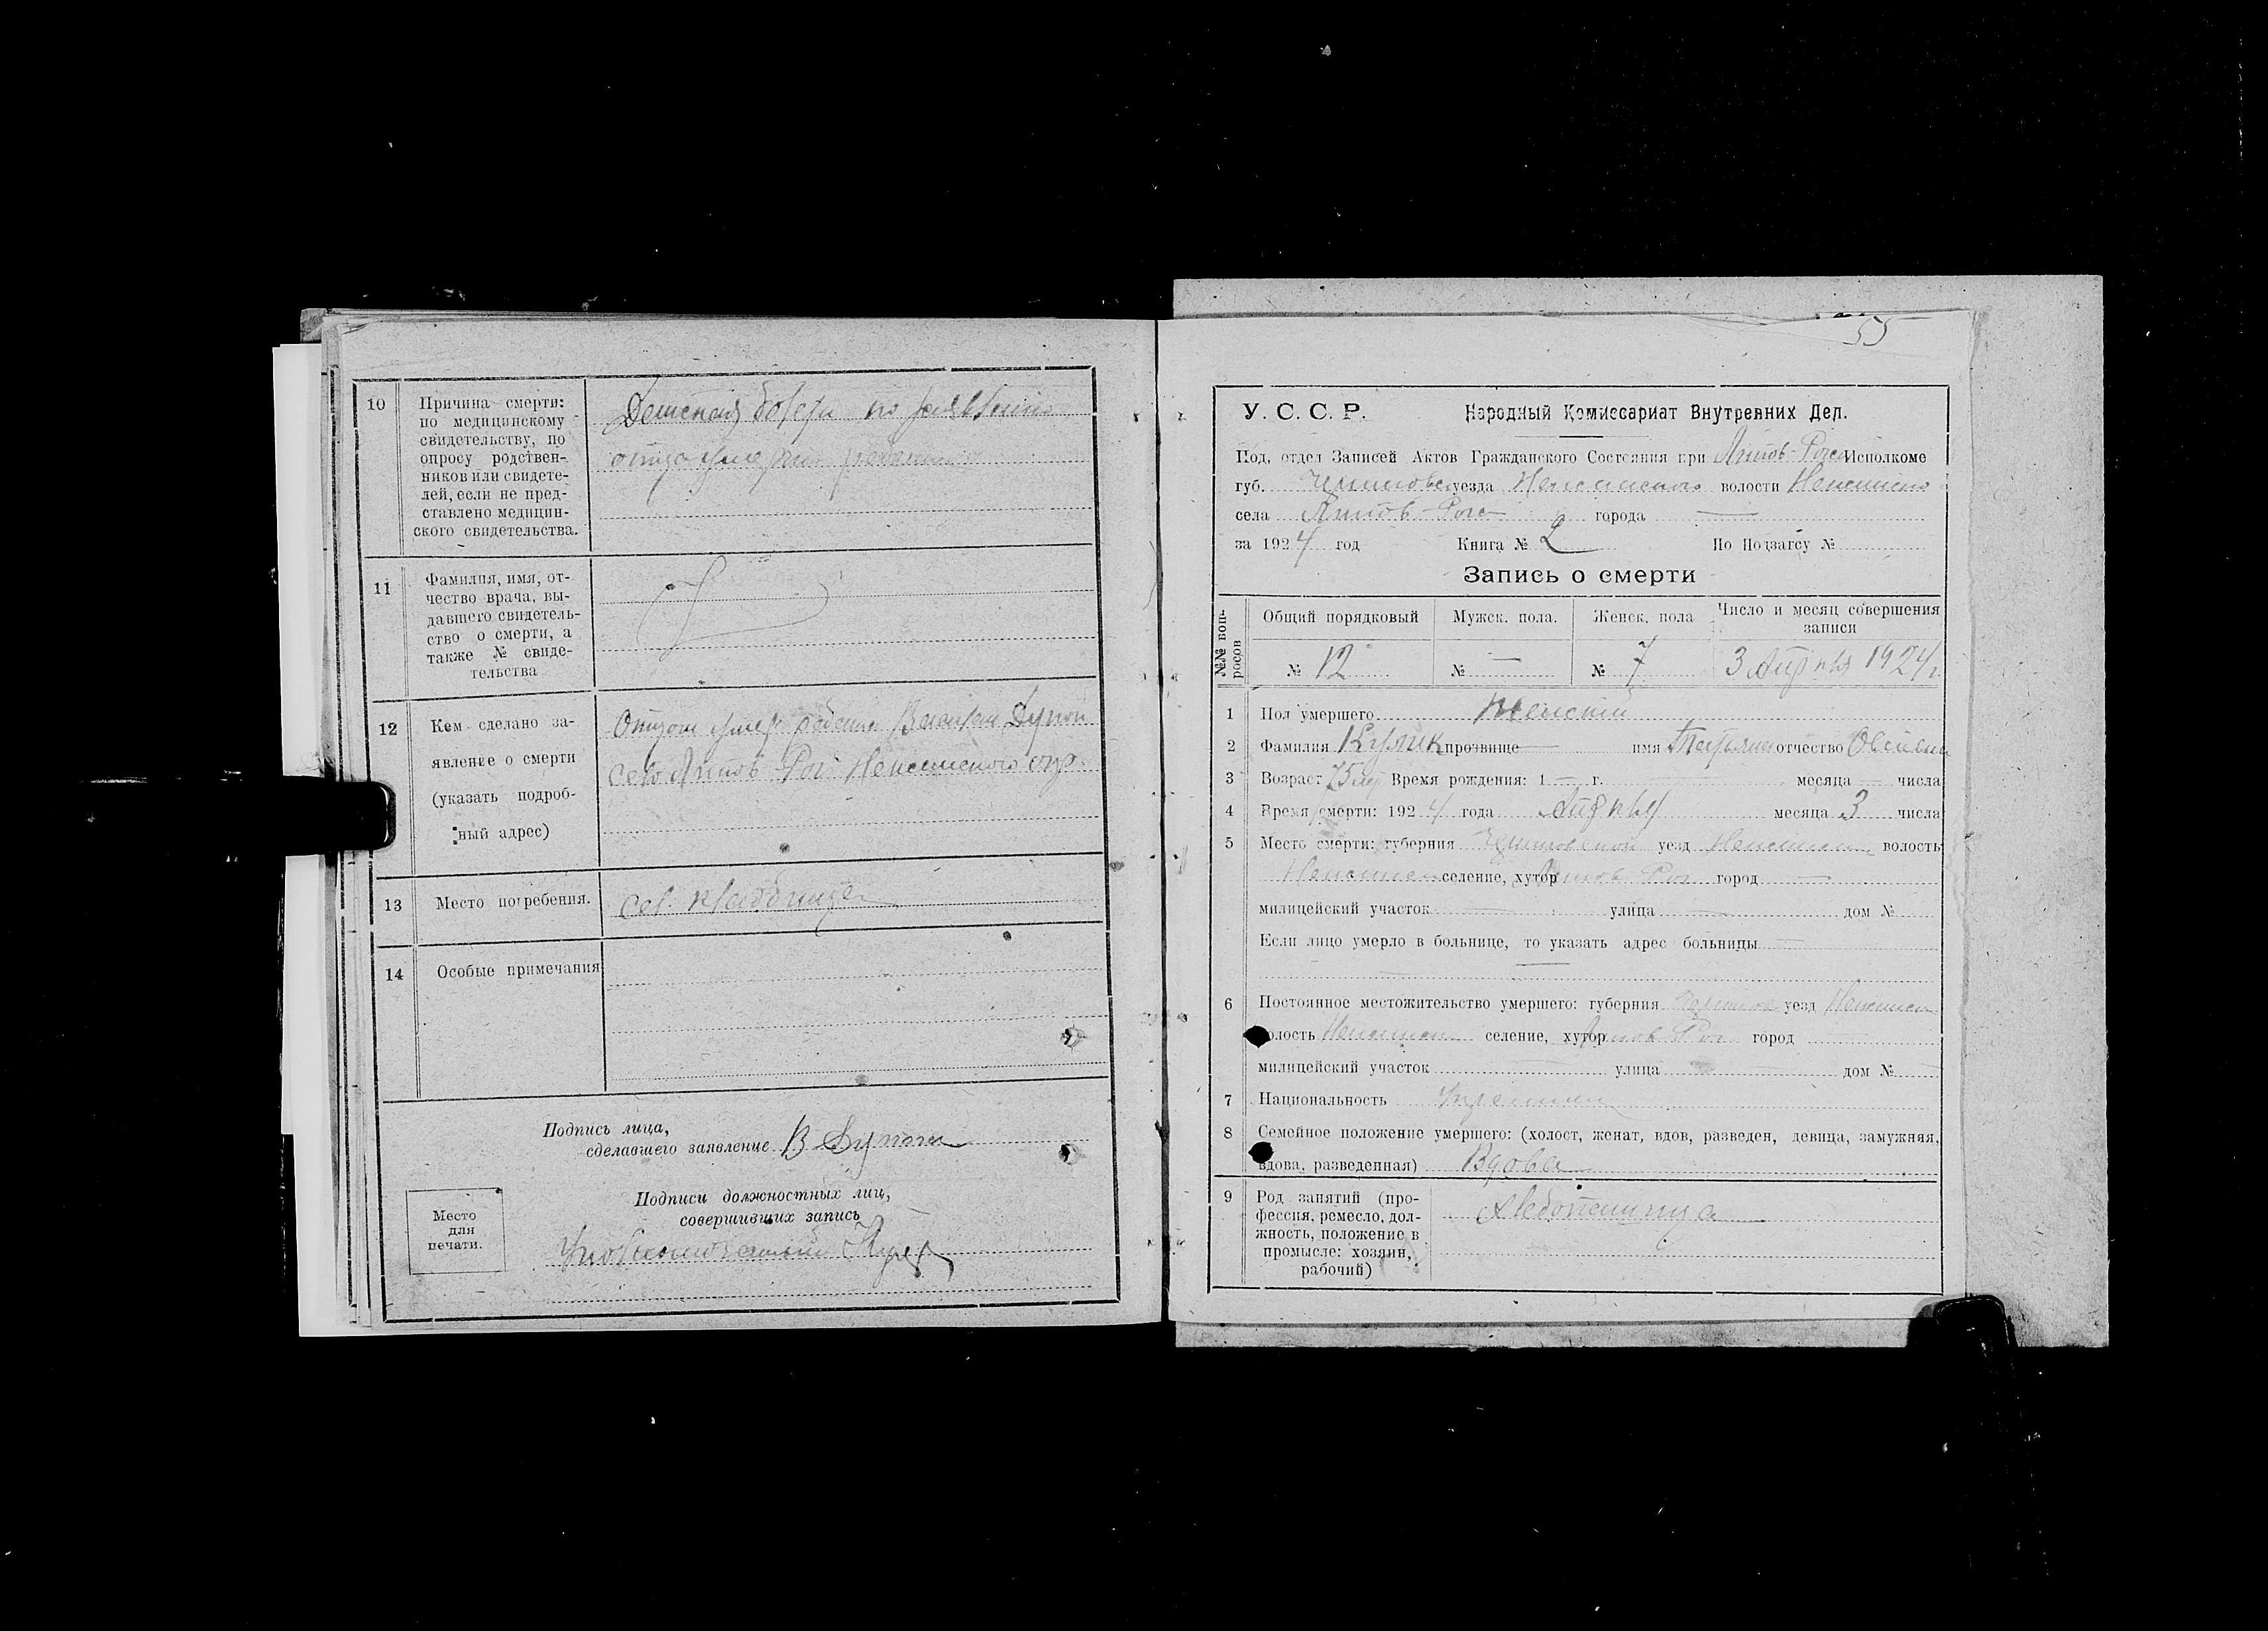 10 Причина смерти:
по медицинскому
свидетельству, по
опросу родствен-
ников или свидете-
лей, если не пред-
ставлено медицин-
ского свидетельства.
Детская по заявлению
отца
11 Фамилия, имя, от-
чество врача, вы-
давшего свидетель-
ство о смерти, а
также № свиде-
тельства
12 Кем сделано за-
явление о смерти
(указать подроб-
ный адрес)
Отцом
село Липов-Рог Неженского окр.
13 Место погребения.
сел. кладбище
14 Особые примечания
Подпись лица,
сделавшего заявление В
Подписи должностных лиц,
совершивших запись
Место
для
печати.
55
У. С. С. Р. Народный Комиссариат Внутренних Дел.
Под, отдел Записей Актов Гражданского Состояния при Липов-Рогск Исполкоме
губ. уезда Неженского волости
села Липов-Рог города —
за 1924 год Книга № 2 По Подзагсу №
Запись о смерти
№№ воп-
росов
Общий порядковый Мужск. пола. Женск. пола Число и месяц совершения
записи
№ 12 № — № 7 3 Апреля 1924 г.
1 Пол умершего Женский
2 Фамилия Кулик прозвище — имя Татьяна отчество
3 Возраст 75 Время рождения: 1 — г. месяца — числа
4 Время смерти: 1924 года Апреля месяца 3 числа
5 Место смерти: губерния уезд волость
селение, хутор Липов Рог город —
милицейский участок — улица — дом №
Если лицо умерло в больнице, то указать адрес больницы —
6 Постоянное местожительство умершего: губерния уезд
волость селение, хутор Липов Рог город
милицейский участок улица дом №
7 Национальность
8 Семейное положение умершего: (холост, женат, вдов, разведен, девица, замужняя,
вдова, разведенная) Вдова
9 Род занятий (про-
фессия, ремесло, дол-
жность, положение в
промысле: хозяин,
рабочий)
Хлебопашица